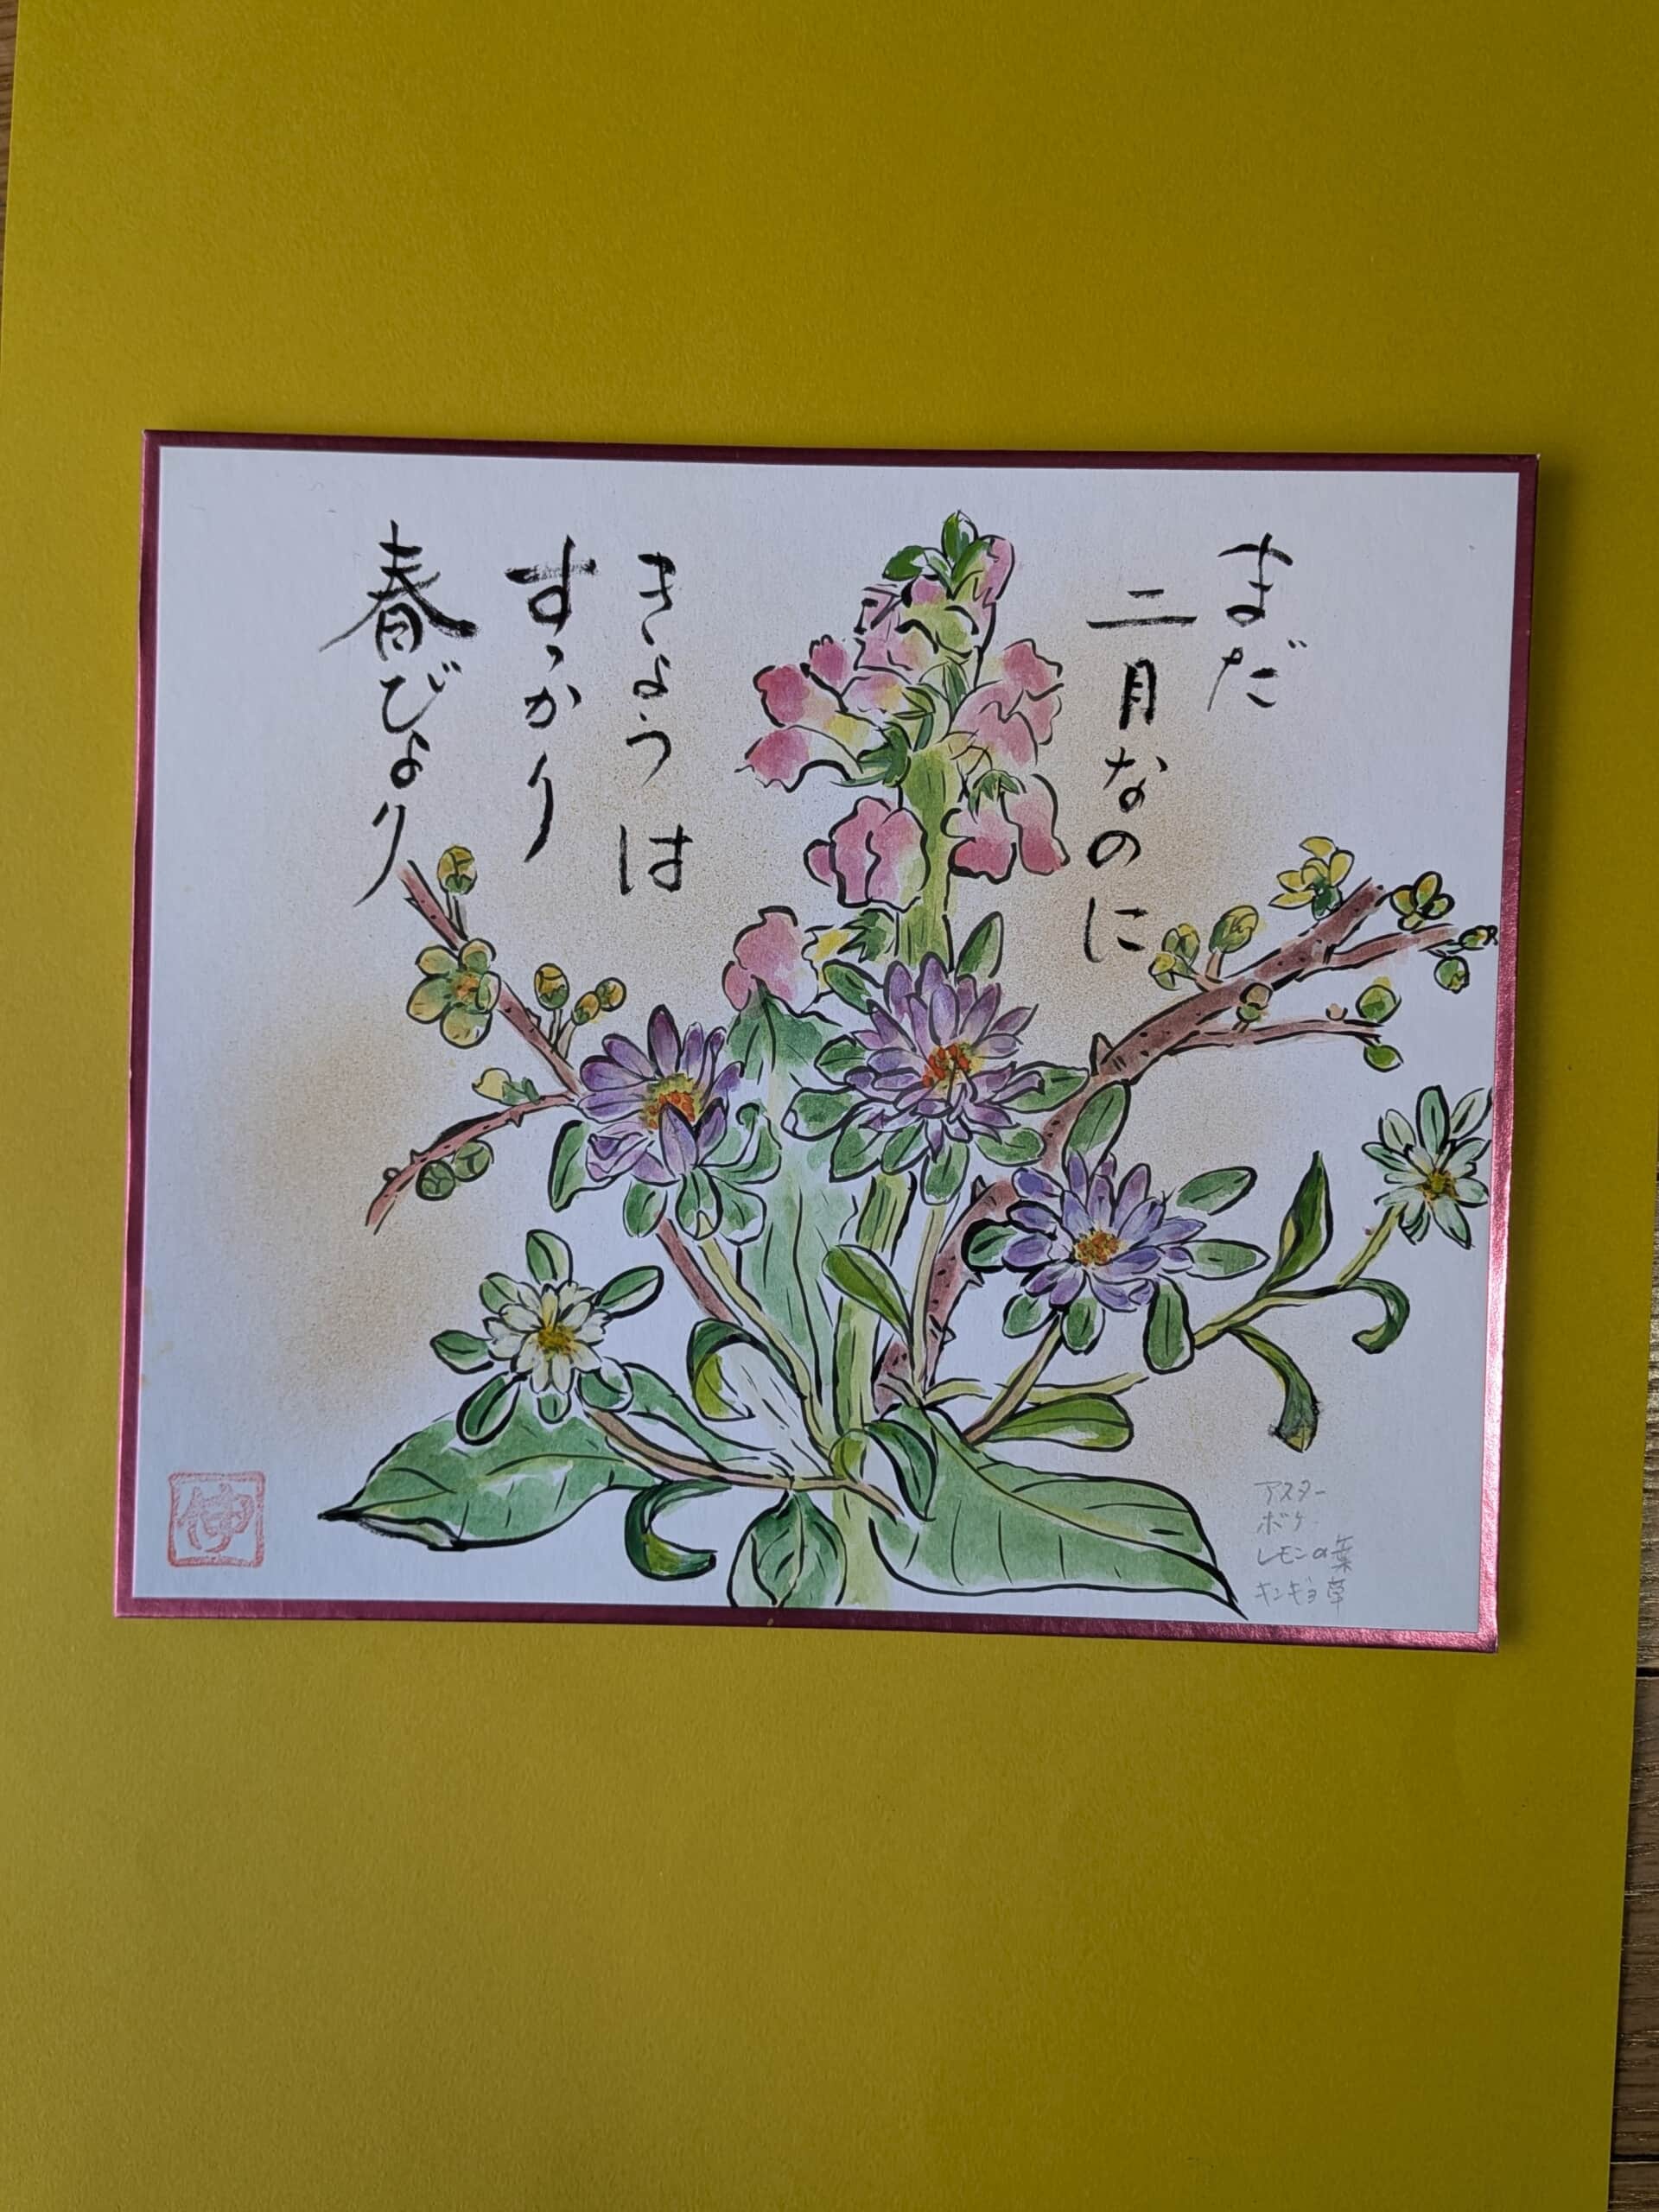 まだ
二月なのに
きょうは
すっかり
春びより
アスター
ボケ
レモンの葉
キンギョ草
伸